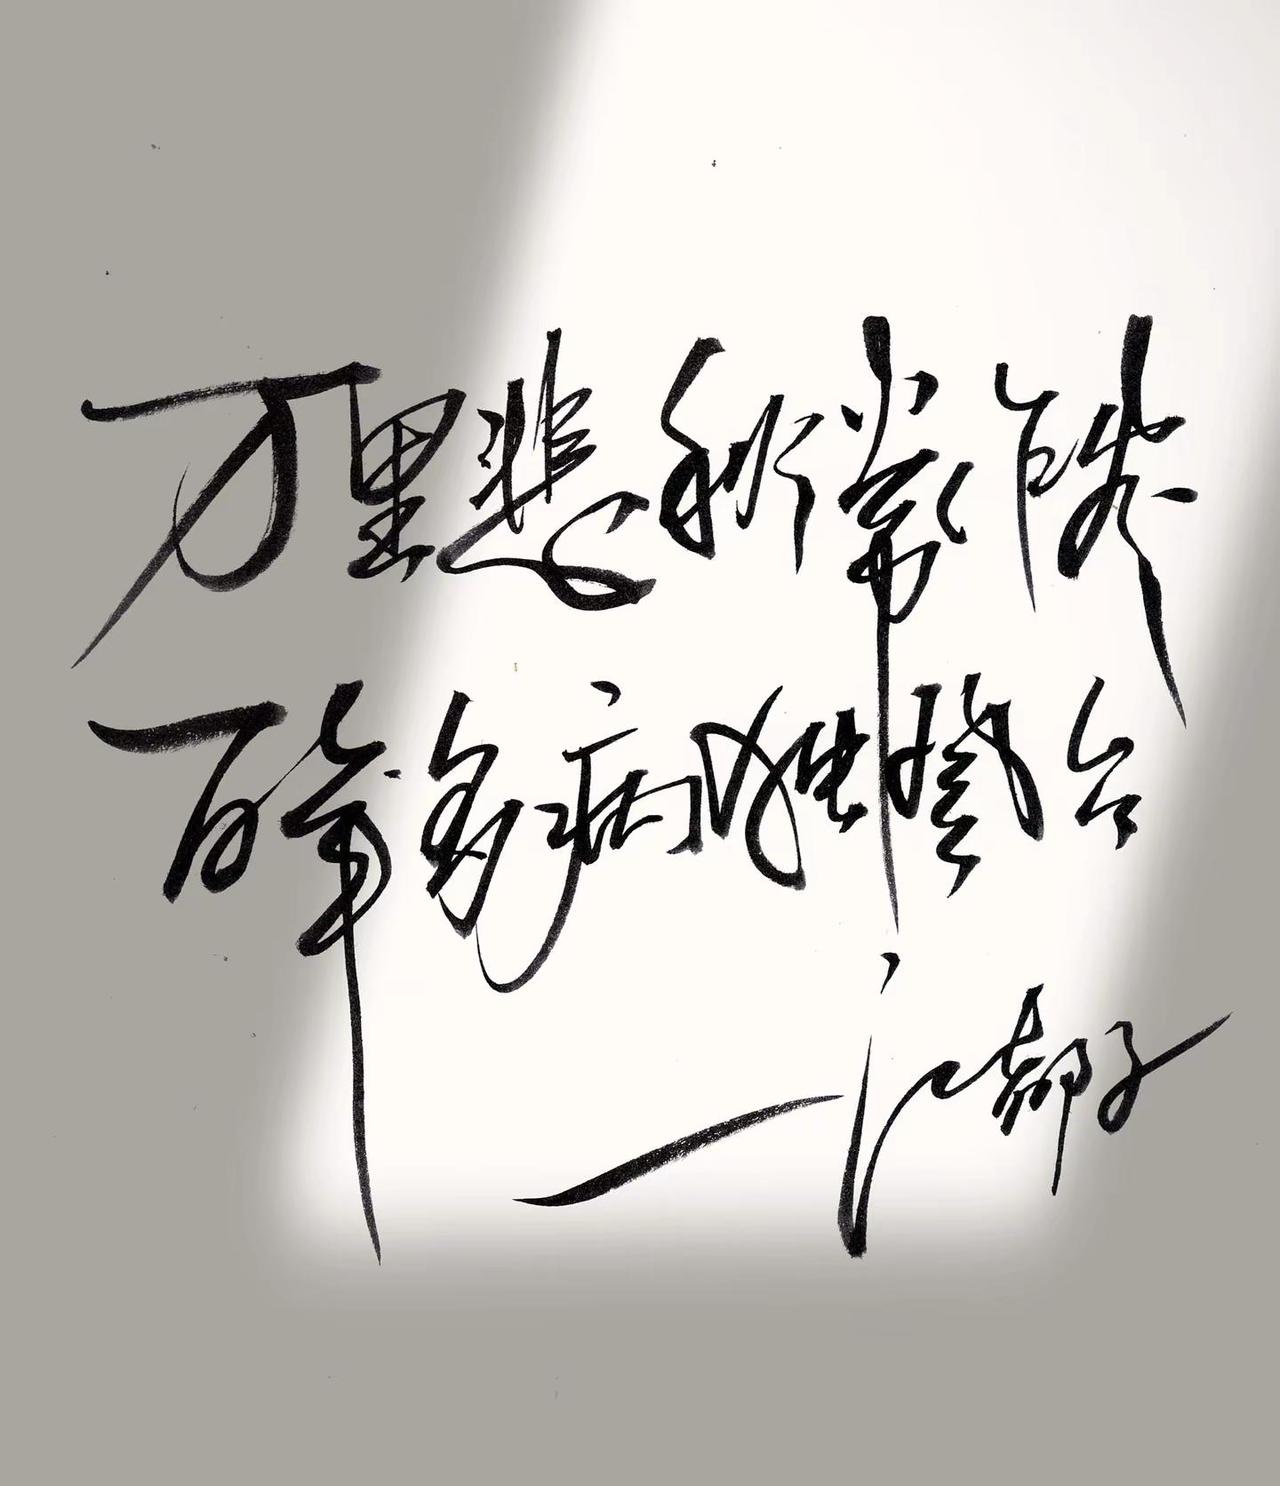 万里悲秋常作客
百年多病独登台
—江都子